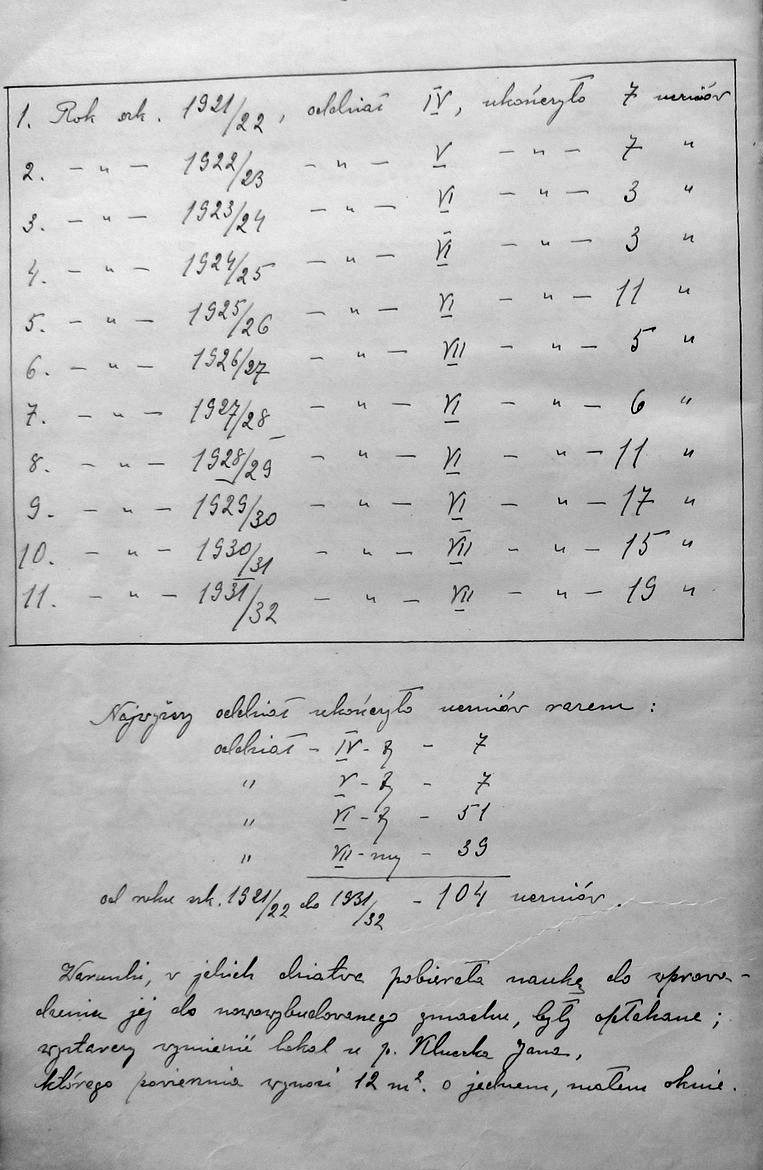 1. Rok szk. 1921/22, oddział IV, ukończyło 7 uczniów
2. — „ — 1922/23 — „ — V — „ — 7 „
3. — „ — 1923/24 — „ — VI — „ — 3 „
4. — „ — 1924/25 — „ — VI — „ — 3 „
5. — „ — 1925/26 — „ — VI — „ — 11 „
6. — „ — 1926/27 — „ — VII — „ — 5 „
7. — „ — 1927/28 — „ — VI — „ — 6 „
8. — „ — 1928/29 — „ — VI — „ — 11 „
9. — „ — 1929/30 — „ — VI — „ — 17 „
10. — „ — 1930/31 — „ — VII — „ — 15 „
11. — „ — 1931/32 — „ — VII — „ — 19 „
Najwyższy oddział ukończyło uczniów razem :
oddział - IV - y - 7
„ V - y - 7
„ VI - y - 51
„ VII - my - 39
od roku szk. 1921/22 do 1931/32 - 104 uczniów.
Warunki, w jakich dziatwa pobierała naukę do wprowa-
dzenia jej do nowowybudowanego gmachu, były opłakane ;
wystarczy wymienić lokal u p. Kluczka Jana,
którego powierzchnia wynosi 12 m². o jednem, małem oknie.